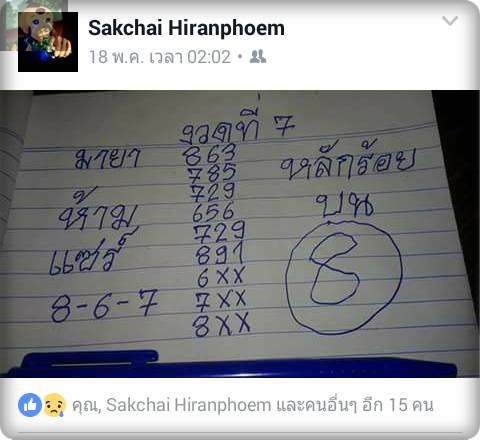 Sakchai Hiranphoem
18 พ.ค. เวลา 02:02
งวดที่ 7
มายา
ห้าม
แชร์
8-6-7
863
785
729
656
729
891
6XX
7XX
8XX
หลักร้อย
บน
8
คุณ, Sakchai Hiranphoem และคนอื่นๆ อีก 15 คน